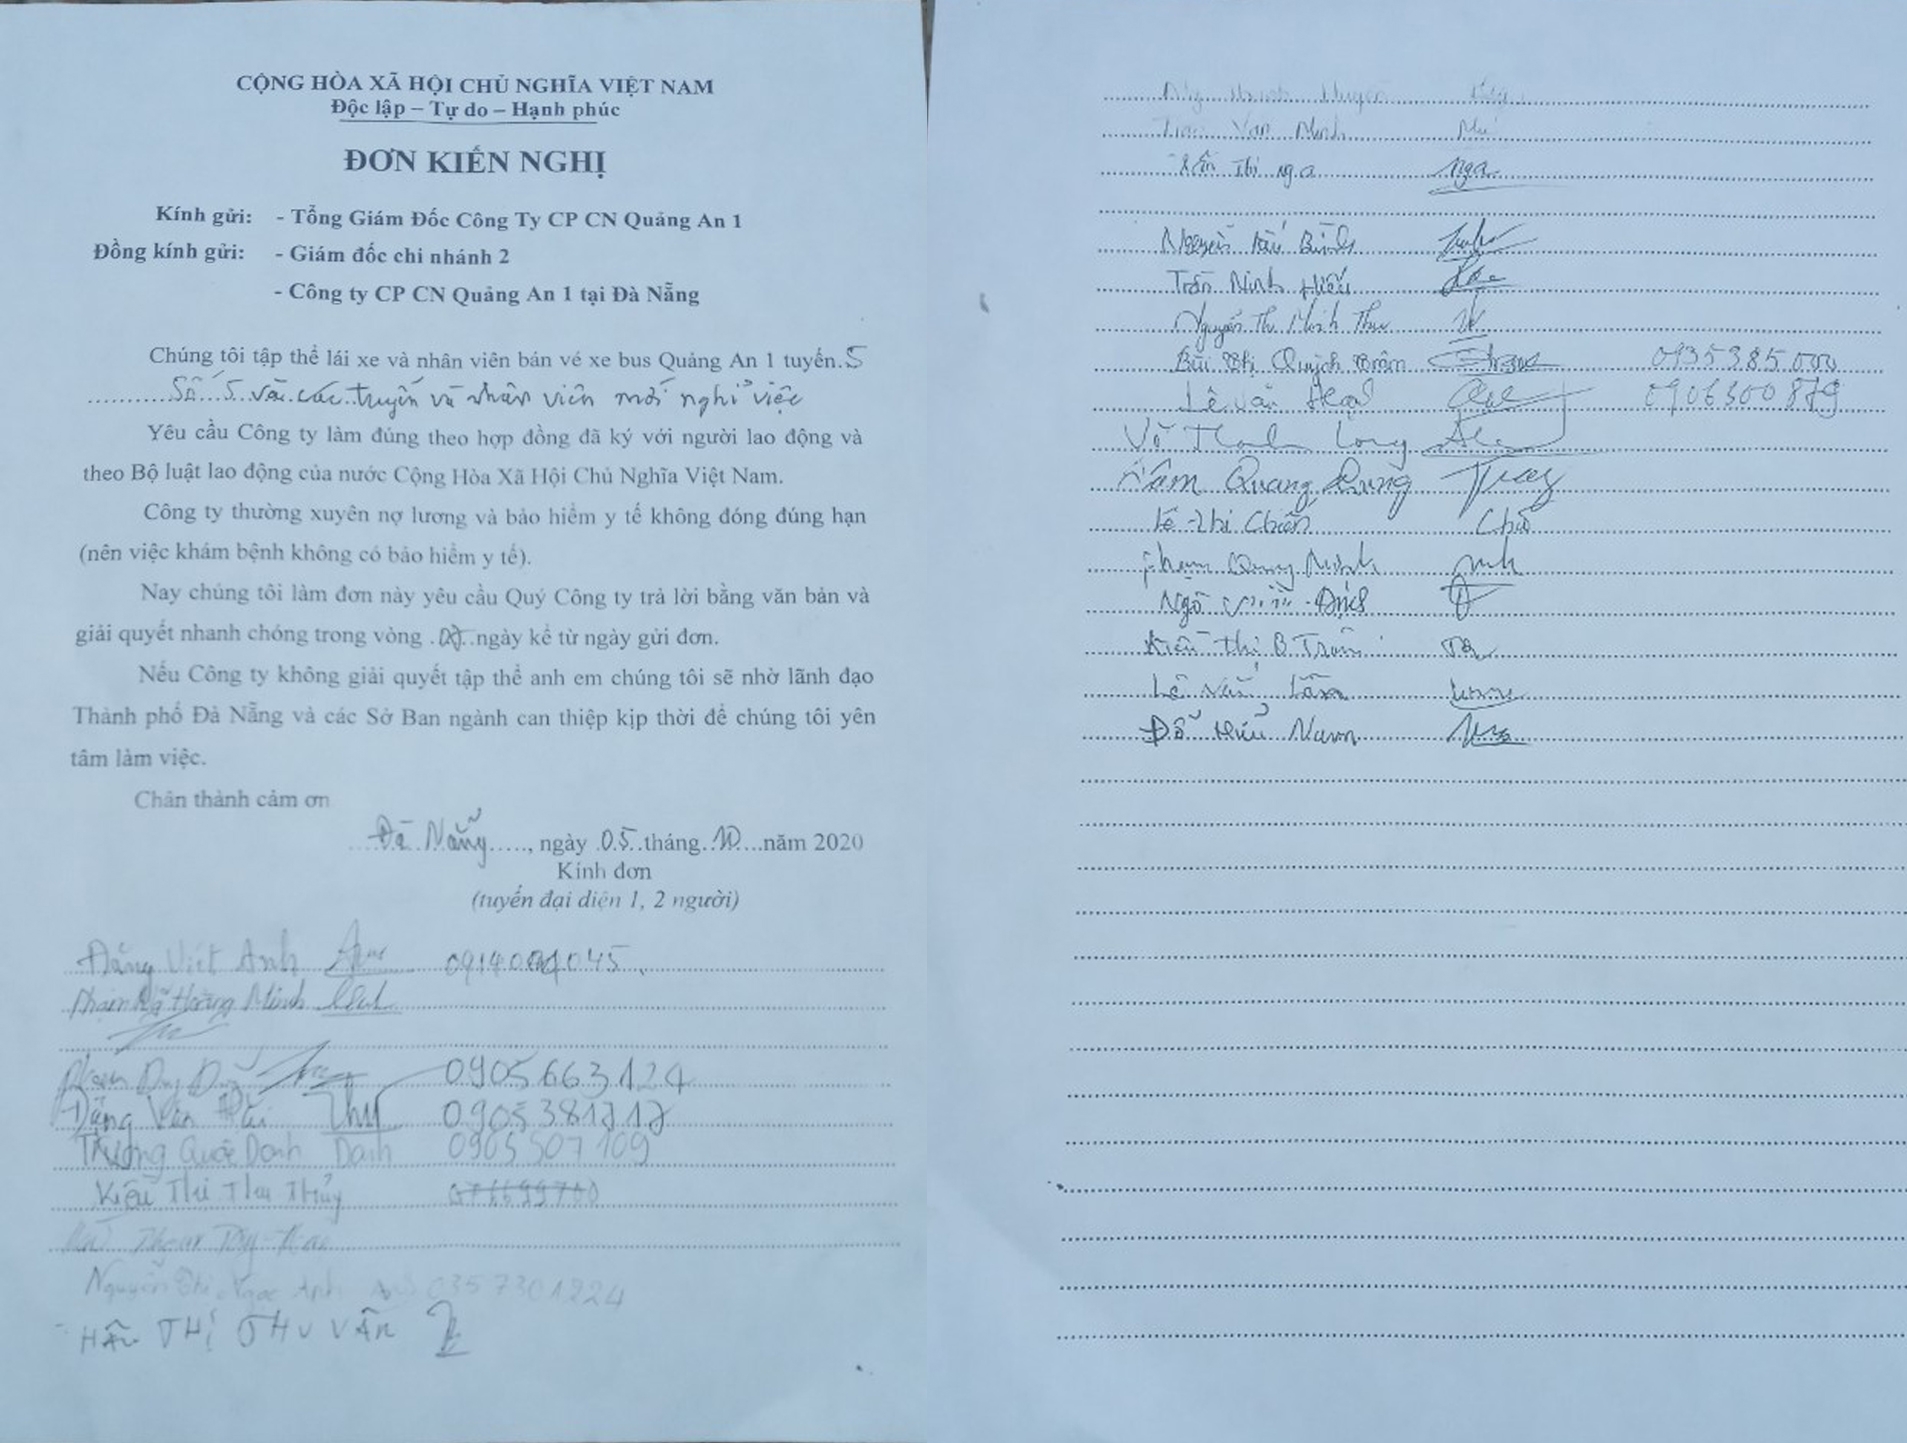 CỘNG HÒA XÃ HỘI CHỦ NGHĨA VIỆT NAM
Độc lập – Tự do – Hạnh phúc
ĐƠN KIẾN NGHỊ
Kính gửi: - Tổng Giám Đốc Công Ty CP CN Quảng An 1
Đồng kính gửi: - Giám đốc chi nhánh 2
- Công ty CP CN Quảng An 1 tại Đà Nẵng
Chúng tôi tập thể lái xe và nhân viên bán vé xe bus Quảng An 1 tuyến.5
Số 5 và các tuyến và nhân viên mới nghỉ việc
Yêu cầu Công ty làm đúng theo hợp đồng đã ký với người lao động và
theo Bộ luật lao động của nước Cộng Hòa Xã Hội Chủ Nghĩa Việt Nam.
Công ty thường xuyên nợ lương và bảo hiểm y tế không đóng đúng hạn
(nên việc khám bệnh không có bảo hiểm y tế).
Nay chúng tôi làm đơn này yêu cầu Quý Công ty trả lời bằng văn bản và
giải quyết nhanh chóng trong vòng ngày kể từ ngày gửi đơn.
Nếu Công ty không giải quyết tập thể anh em chúng tôi sẽ nhờ lãnh đạo
Thành phố Đà Nẵng và các Sở Ban ngành can thiệp kịp thời để chúng tôi yên
tâm làm việc.
Chân thành cảm ơn
Đà Nẵng....., ngày .05..tháng.10...năm 2020
Kính đơn
(tuyến đại diện 1, 2 người)
Đặng Việt Anh
Phạm Hoàng Minh
Phạm Duy 0905663124
Đặng Văn Hải Thy 0905381717
Trương Quốc Danh Danh 0905507109
Kiều Thị Thu Thủy
Nguyễn Thị Ngọc Anh 0357301224
HẦU THỊ THU VÂN
Huyền
Trần Văn Minh
Thị Nga Nga
Nguyễn Bình
Trần Ninh Hiếu
Nguyễn Thị Minh Thư
Bùi Thị Quỳnh Trâm 0935385000
Lê Văn 0906300879
Võ Thanh Long
Quang Dũng
Lê Thị Chiến
Phạm Quang Minh
Ngô Đức
Kiều Thị B Trâm
Lê Văn
Đỗ Hiếu Nam